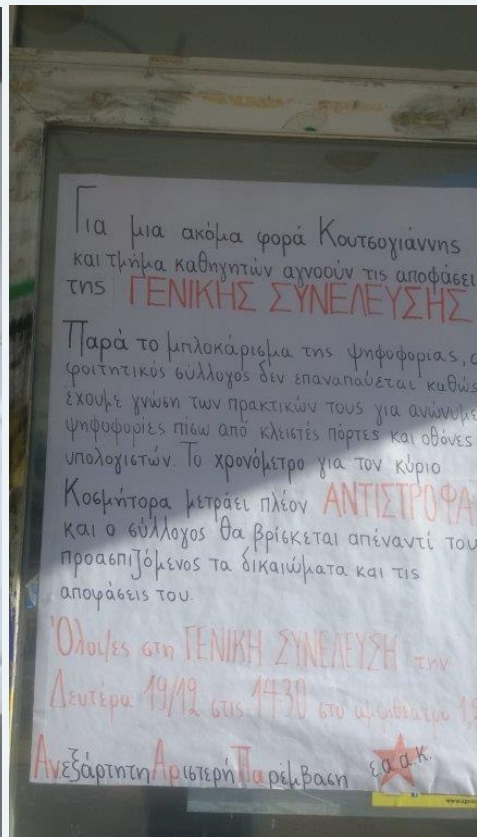 Για μια ακόμα φορά Κουτσογιάννης
και τμήμα καθηγητών αγνοούν τις αποφάσει
της ΓΕΝΙΚΗΣ ΣΥΝΕΛΕΥΣΗΣ
Παρά το μπλοκάρισμα της ψηφοφορίας, ο
φοιτητικός σύλλογος δεν επαναπαύεται καθώς
έχουμε γνώση των πρακτικών τους για ανώνυμε
ψηφοφορίες πίσω από κλειστές πόρτες και οθόνες
υπολογιστών. Το χρονόμετρο για τον κύριο
Κοσμήτορα μετράει πλέον ΑΝΤΙΣΤΡΟΦΑ
και ο σύλλογος θα βρίσκεται απέναντί του
προασπιζόμενος τα δικαιώματα και τις
αποφάσεις του.
Όλοι/ες στη ΓΕΝΙΚΗ ΣΥΝΕΛΕΥΣΗ την
Δευτέρα 19/12 στις 14:30 στο αμφιθέατρο
Ανεξάρτητη Αριστερή Παρέμβαση ε.α.α.κ.